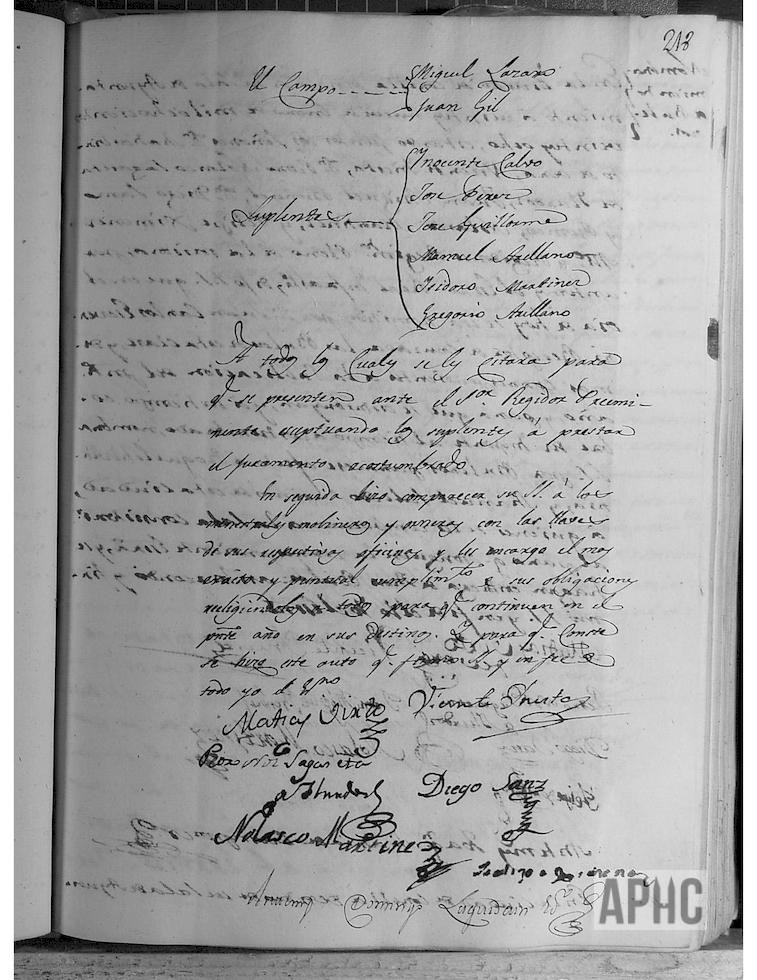 213
El Campo
Miguel Lazaro
Juan Gil
Suplentes
Inocente Calvo
Jose Perez
Jose Guillorme
Manuel Arellano
Isidoro Martinez
Gregorio Arellano
A todos los Cuales se les Citara para
q.e se presenten ante el S.or Regidor Preemi-
nente exeptuando los suplentes á prestar
el juramento acostumbrado
En seguida hizo comparecer su S. á los
menestrales molineros y orneros con las llaves
de sus respectivos oficinas y les encargo el mas
exacto y puntual cumplim.to de sus obligaciones
a todos para q.e continuen en el
pnte año en sus destinos. Y para q.e Conste
se hizo este auto q.e S. S. y en fee de
todo yo el Ss.no
Matias Sixto
Vicente
Sagaseta
Diego Sanz
Nolasco Martinez
Luquidain Ss.no
APHC